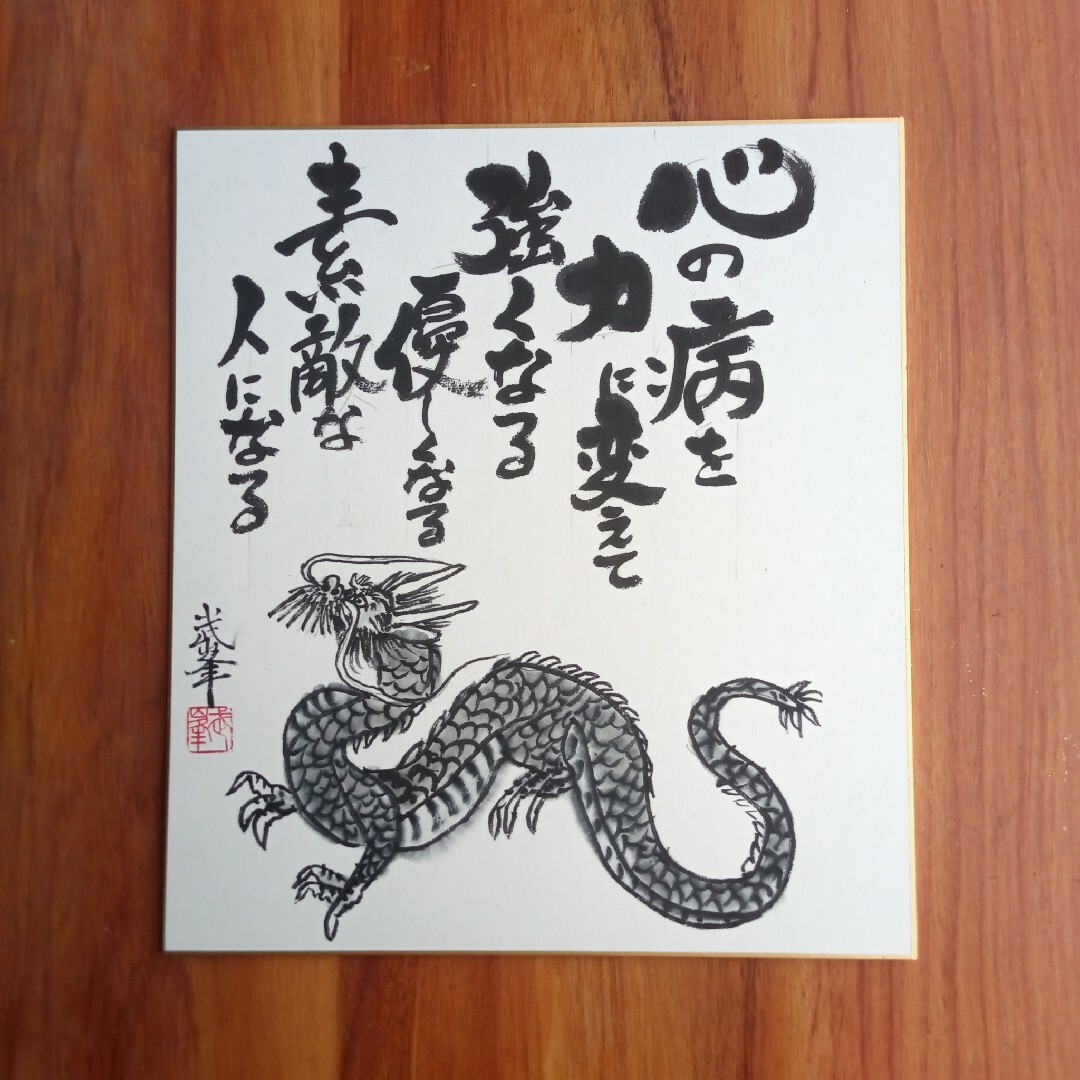 心の病を
力に変えて
強くなる
優しくなる
素敵な
人になる